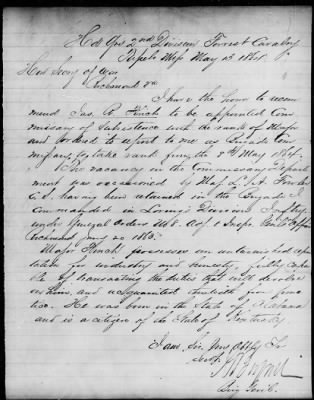 Hd Qrs 2nd Division Forrest Cavalry
Tupelo Miss May 23 1864.
Hon Secy of War
Richmond Va
I have the honor to recom
mend Jas. R. Finch to be appointed Com
missary of Subsistence with the rank of Major
and ordered to report to me as Brigade Com
missary, to take rank from the 2nd May 1864.
The vacancy on the Commissary Depart
ment was occasioned by Maj. L. A. Fowler
C.S. having been retained in the Brigade
Commanded in Loring's Division Infty
under General Orders No 8. Adjt & Insp. Genl's Office
Richmond
Major Finch possesses an untarnished repu
tation for industry and honesty, fully capa
ble of transacting the duties that will devolve
on him, and acquainted therewith for some
time. He was born in the State of Alabama
and is a citizen of the State of Kentucky.
I am Sir Your Obt
Servt.
Brig Genl C.